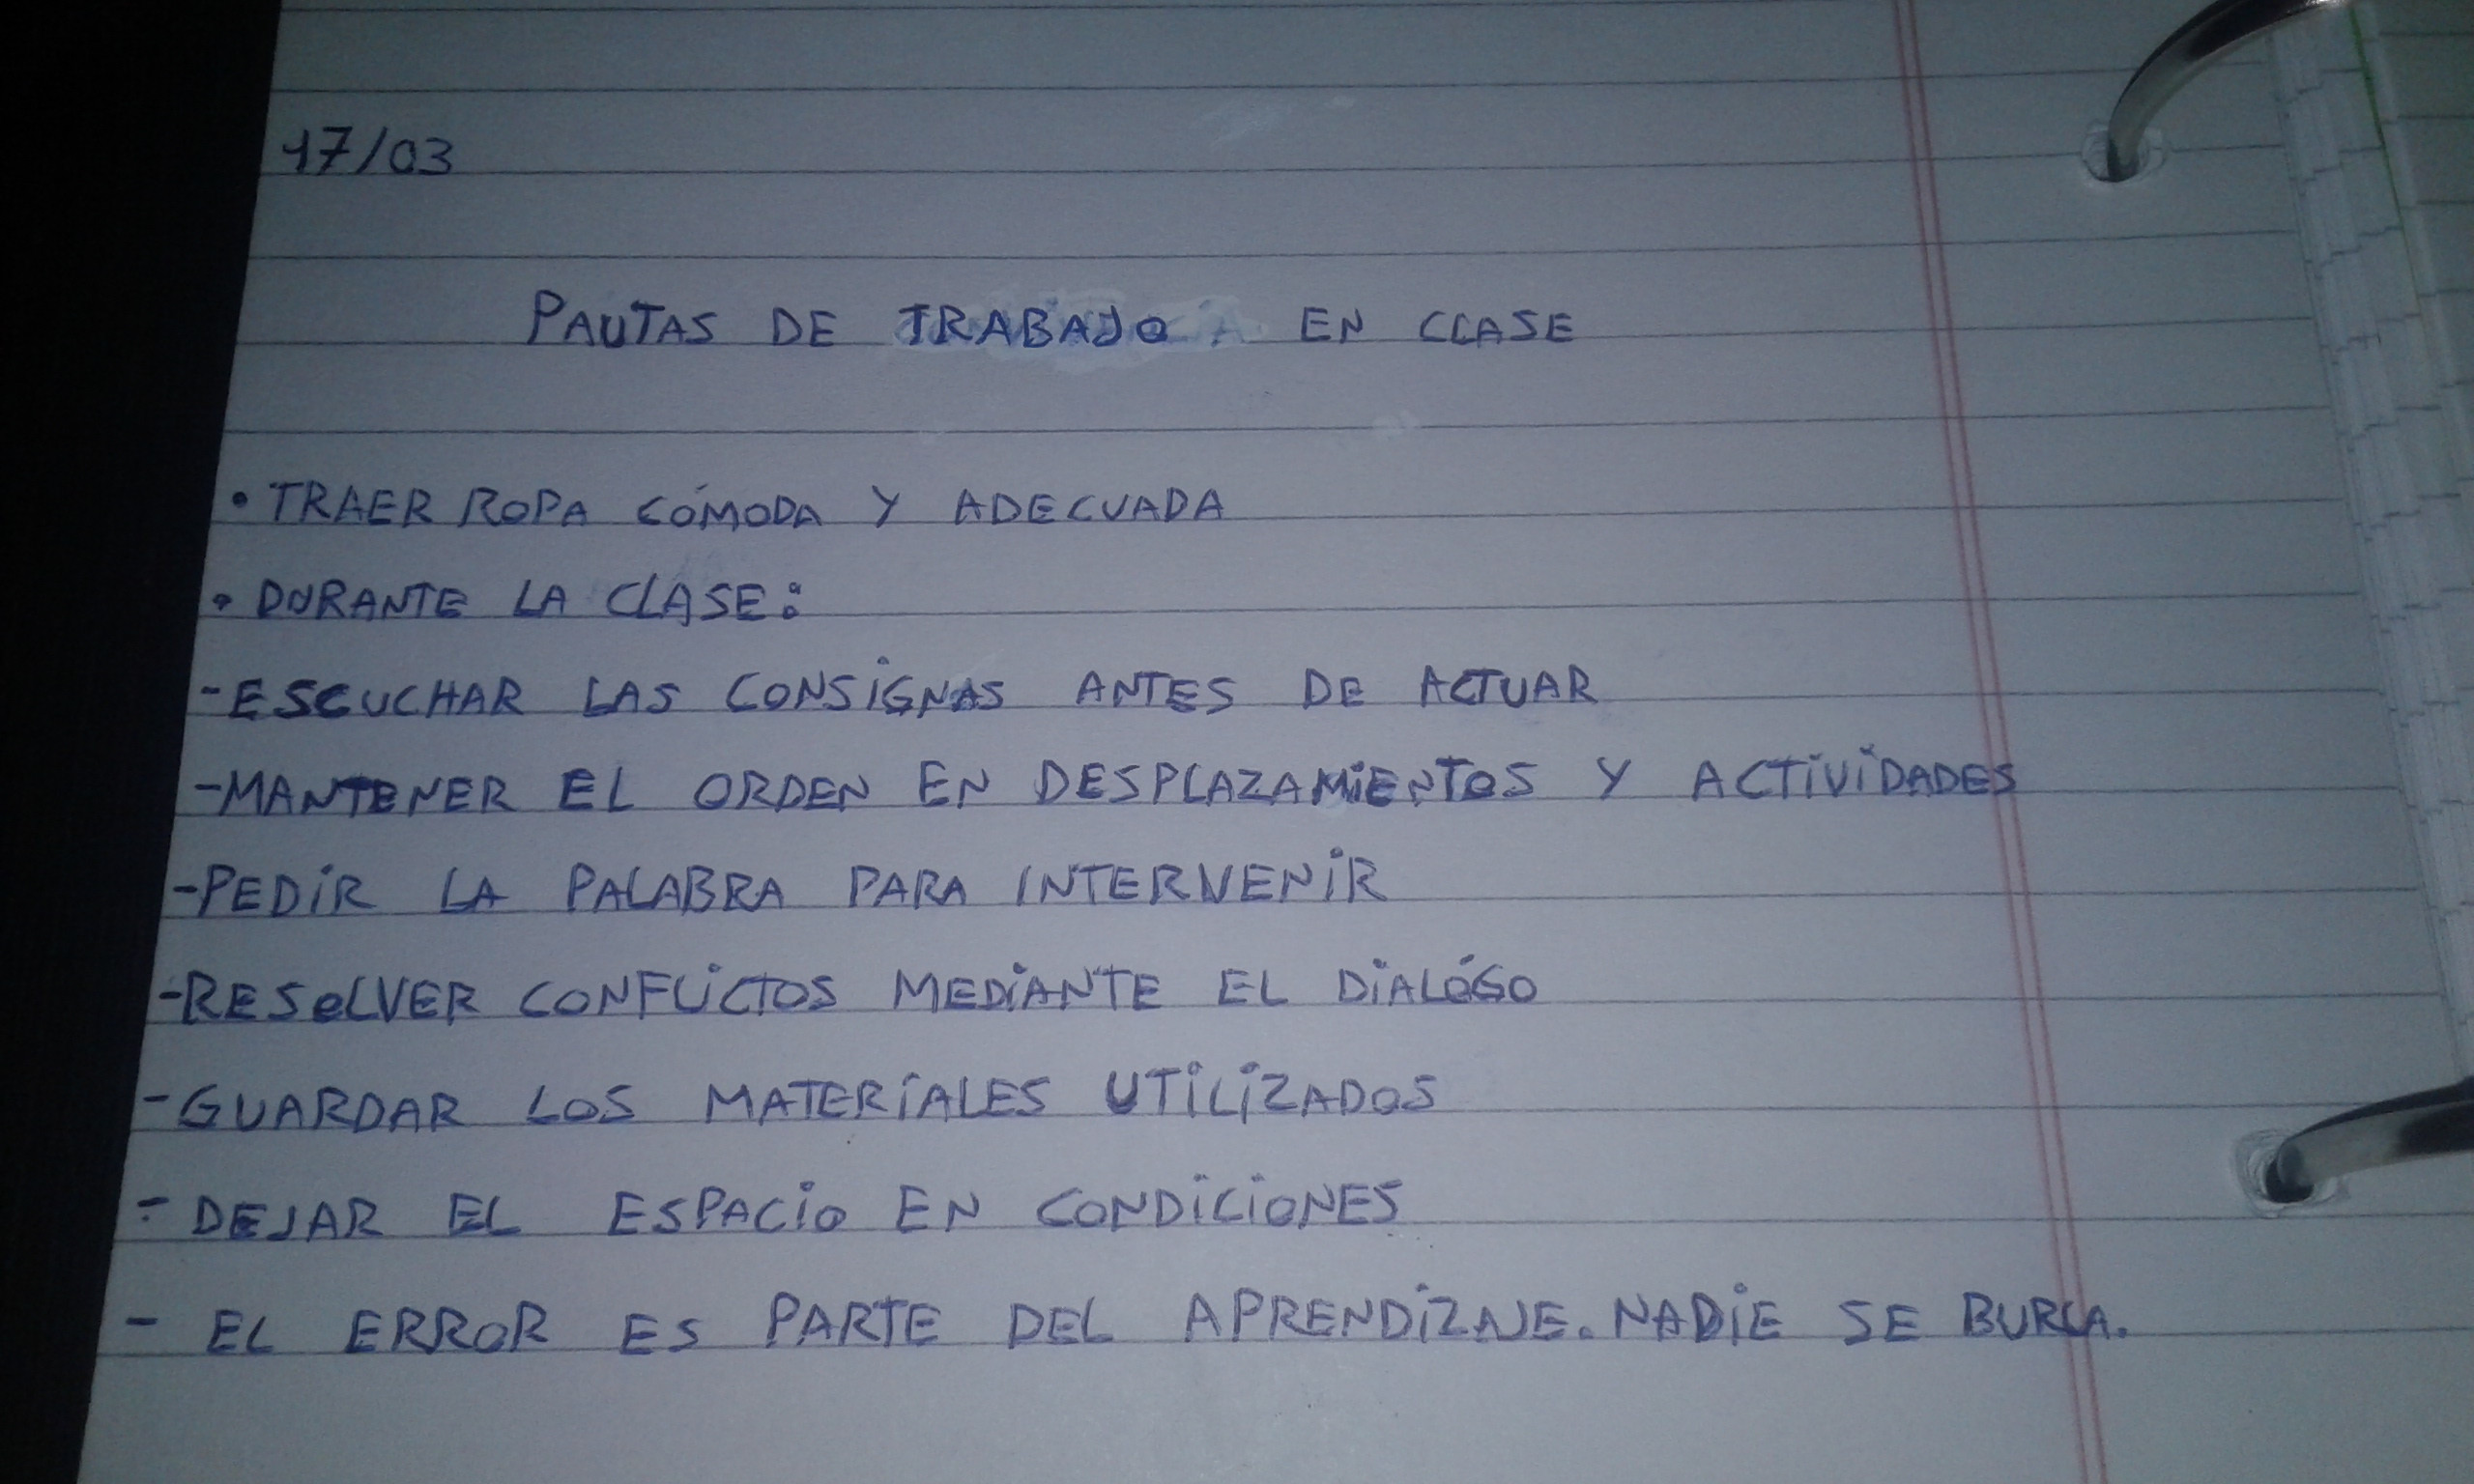 17/03
PAUTAS DE TRABAJO EN CLASE
• TRAER ROPA CÓMODA Y ADECUADA
• DURANTE LA CLASE:
-ESCUCHAR LAS CONSIGNAS ANTES DE ACTUAR
-MANTENER EL ORDEN EN DESPLAZAMIENTOS Y ACTIVIDADES
-PEDIR LA PALABRA PARA INTERVENIR
-RESOLVER CONFLICTOS MEDIANTE EL DIALÓGO
-GUARDAR LOS MATERIALES UTILIZADOS
- DEJAR EL ESPACIO EN CONDICIONES
- EL ERROR ES PARTE DEL APRENDIZAJE. NADIE SE BURLA.